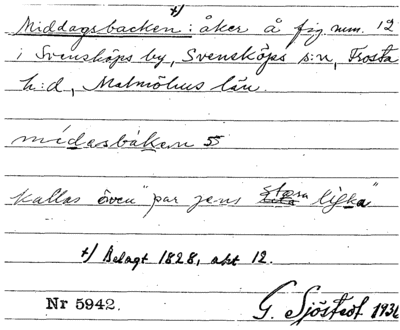 +)
Middagsbacken: åker å fig. num. 12
i Svensköps by, Svensköps s:n, Frosta
h:d, Malmöhus län.
mídasbáken
Kallas även "par jens stora lyka"
+) Belagt 1828, akt 12.
Nr 5942. G. Sjöstedt